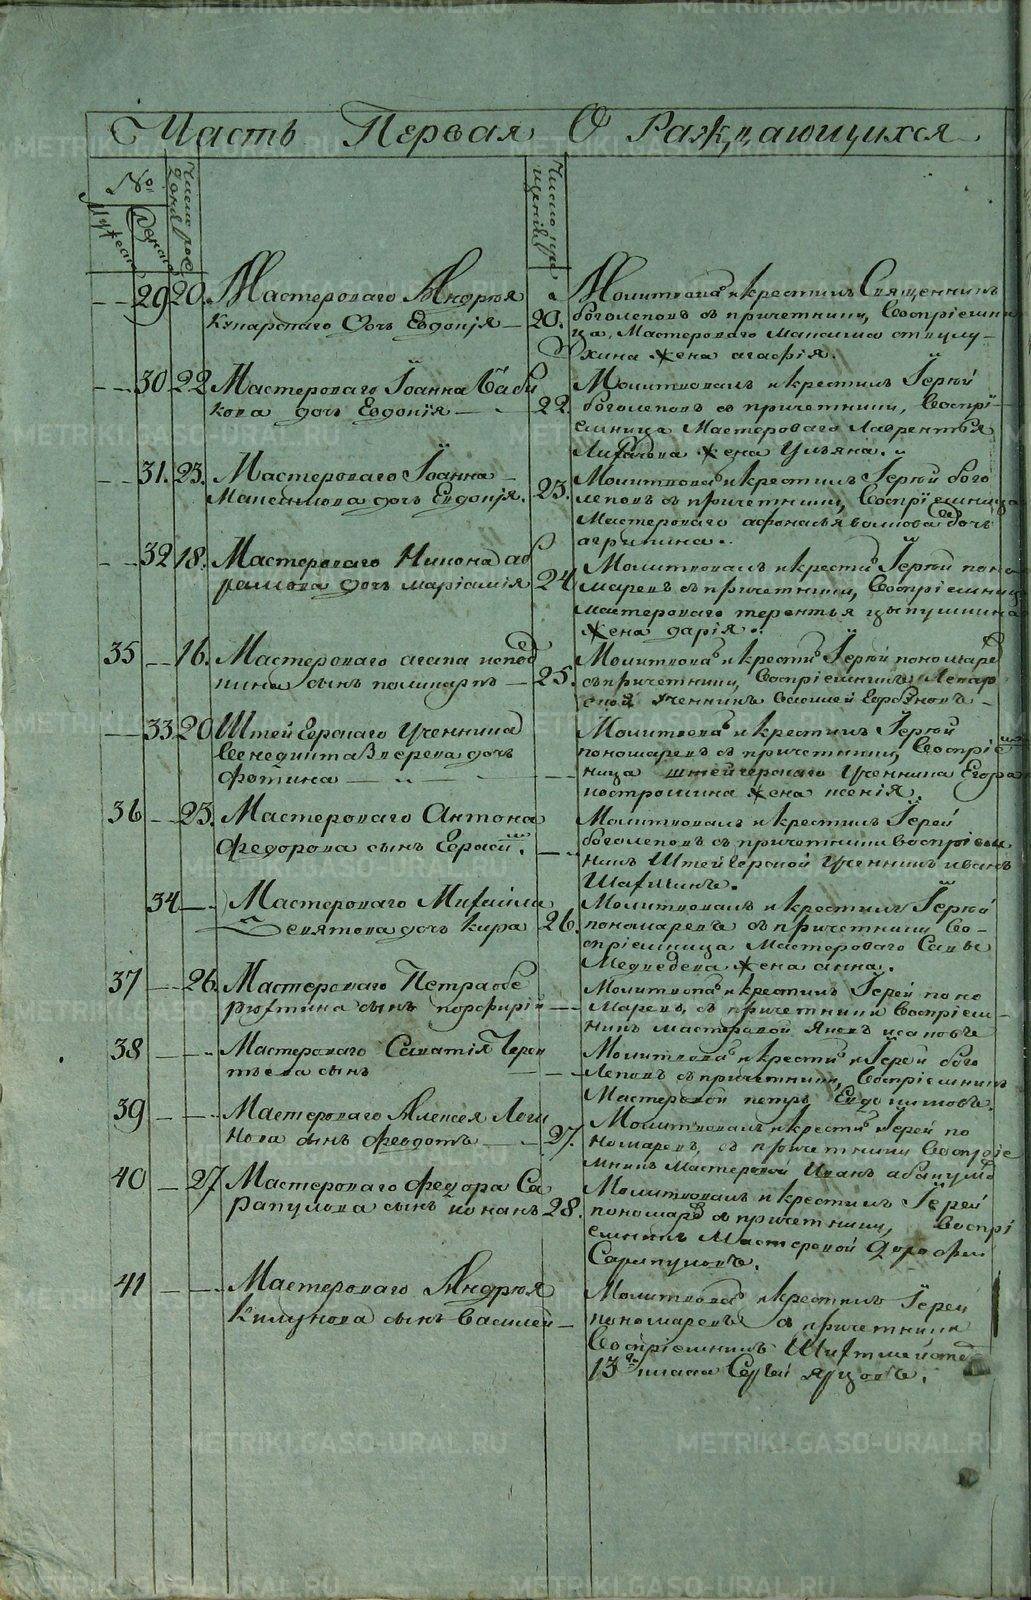 Часть Первая О Раждающихся
№.
Мужеска
Женска
Число рождения
Число крещения
29 20. Мастероваго Андрея
Кунарскаго дочь Евдокія
20. Молитвовал и крестил Священникъ
боголеповъ съ причетники, Воспріемни
ца, Мастероваго Максима
жена агафія.
30 22 Мастероваго Іоанна Баби
кова дочь Евдокія
22. Молитвовалъ и крестилъ Іерей
боголеповъ съ причетники, Воспрі-
емница Мастероваго Лаврентья
Лихачова жена Ульяна.
31. 23. Мастероваго Іоанна
дочь Евдокія.
23. Молитвовал и крестилъ Іерей бого
леповъ съ причетники, Воспріемница
Мастероваго афонасья волкова дочь
агрипина.
32 18. Мастероваго Никона аб
рамова дочь маріамія
24 Молитвовалъ и крестил Іерей поно
маревъ съ причетники, Воспріемница
мастероваго терентья цыпушкина
жена дарія.
35 16. Мастероваго агапа испод
кина сынъ поликарпъ
25. Молитвовал и крестил Іерей пономарев
съ причетники, Воспріемникъ Лекар
ской ученикъ Василей
33 20 Штейгерскаго Ученика
Венедикта Вперева дочь
Фотина
Молитвовал и крестилъ Іерей
пономаревъ съ причетники, Воспріем
ница штейгерскаго Ученика Егора
костромина жена ксенія.
36 25. Мастероваго Антона
Федорова сынъ Герасим.
Молитвовалъ и крестилъ Іерей
боголеповъ съ причетники воспріем
никъ Штейгерской Ученикъ иванъ
Шахминъ.
34 Мастероваго Михаила
Девятова дочь Кира
26. Молитвовалъ и крестилъ Іерей
пономаревъ съ причетники Во-
спріемница Мастероваго Савы
Медведева жена анна.
37 26. Мастероваго Петра обе
рюхтина сынъ порфирій
Молитвовал и крестилъ Іерей поно
маревъ, съ причетники Воспріем-
никъ мастеровой Яковъ исаковъ
38 Мастероваго Саватія Терен
тьева сынъ
Молитвовал и крестил Іерей бого
леповъ съ причетники, Воспріемникъ
Мастеровой петръ Евдокимовъ.
39 Мастероваго Алексея Логи
нова сынъ феодотъ
27. Молитвовалъ и крестил Іерей по
номаревъ, съ причетники Воспріе
мникъ Мастеровой Иванъ абакумов
40 27 Мастероваго федора Са
рапулова сынъ кононъ
28. Молитвовалъ и крестилъ Іерей
пономарев съ причетники, Воспрі
емникъ Мастеровой Дорофей
Сарапуловъ.
41 Мастероваго Андрея
Килунова сынъ Василей
Молитвовал и крестилъ Іерей
пономаревъ съ причетники
Воспріемникъ Шихтмейстер
13го класа Сергей ярцовъ.
METRIKI.GASO-URAL.RU